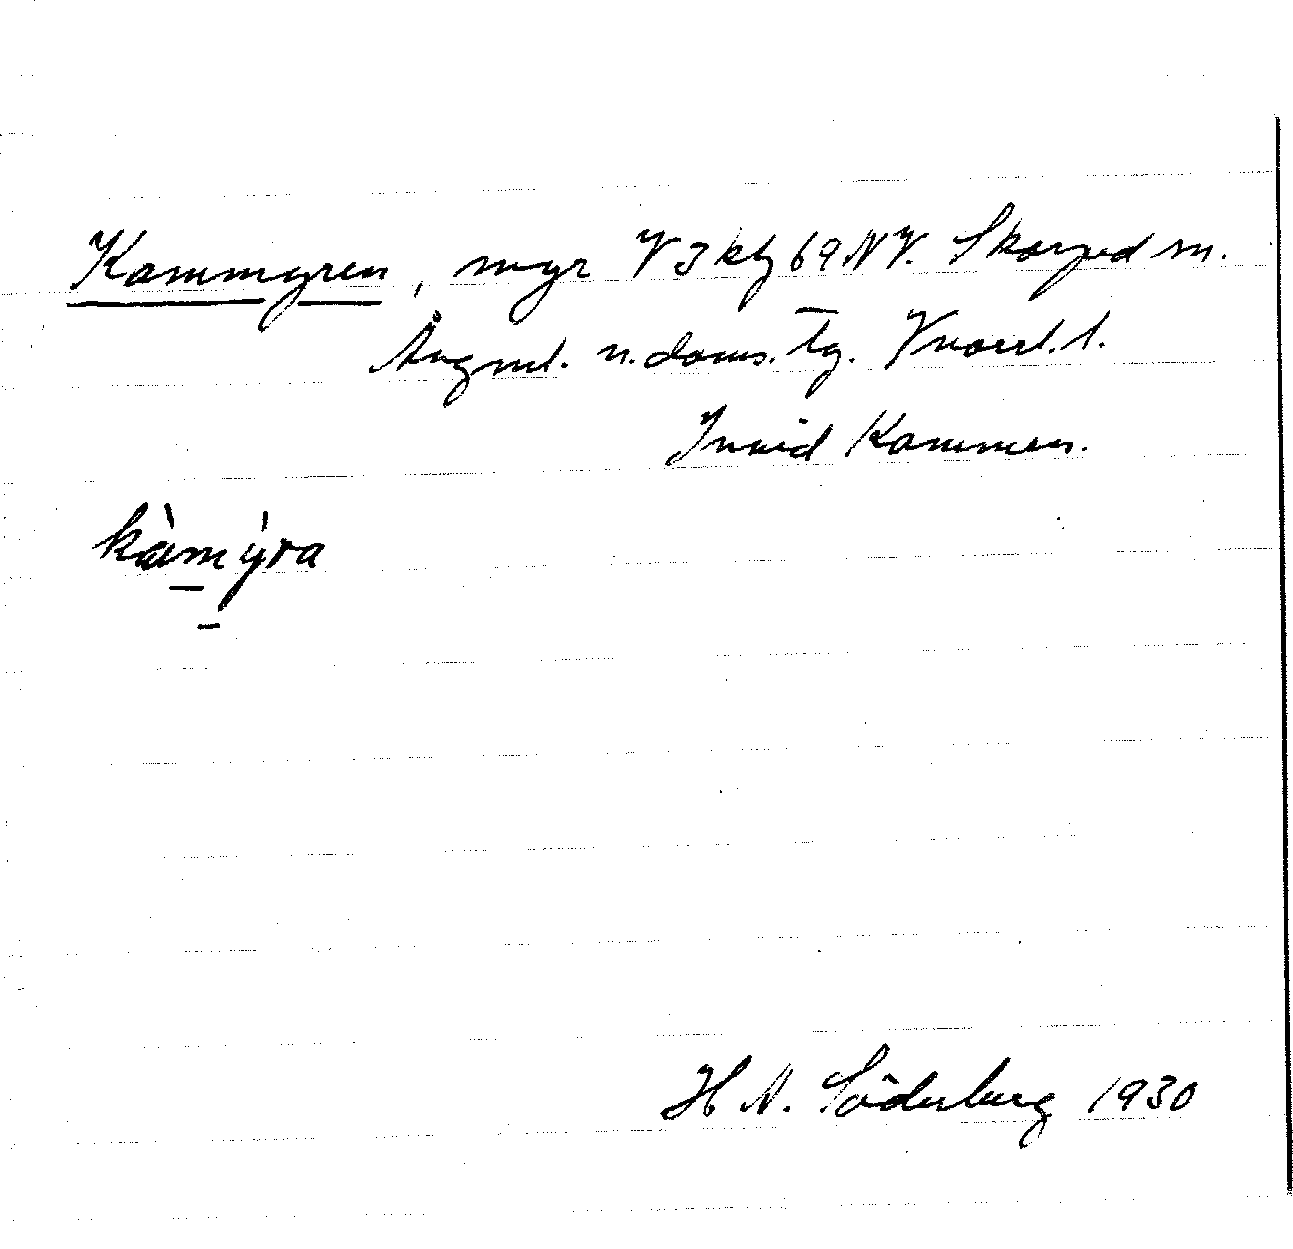 Kammyren, myr V 3 kbj 69 NV. Skorped sn.
Ångml. n. doms. tg. Vnorrl. l.
Invid Kammen.
kàmýra
H N. Söderberg 1930